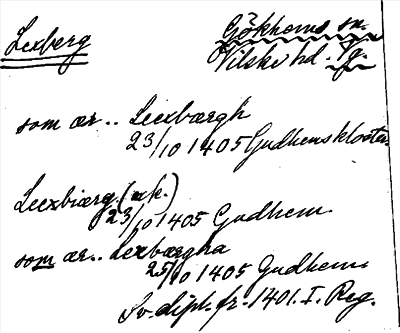 Lexberg
Gökhems sn.
Vilske hd. Vg.
som ær.. Leexbærgh
23/10 1405 Gudhems kloster
Leexbiærg (uk.)
23/10 1405 Gudhem.
som ær.. Lexbærgha
25/10 1405 Gudhem.
Sv. dipl. fr. 1401. I. Reg.